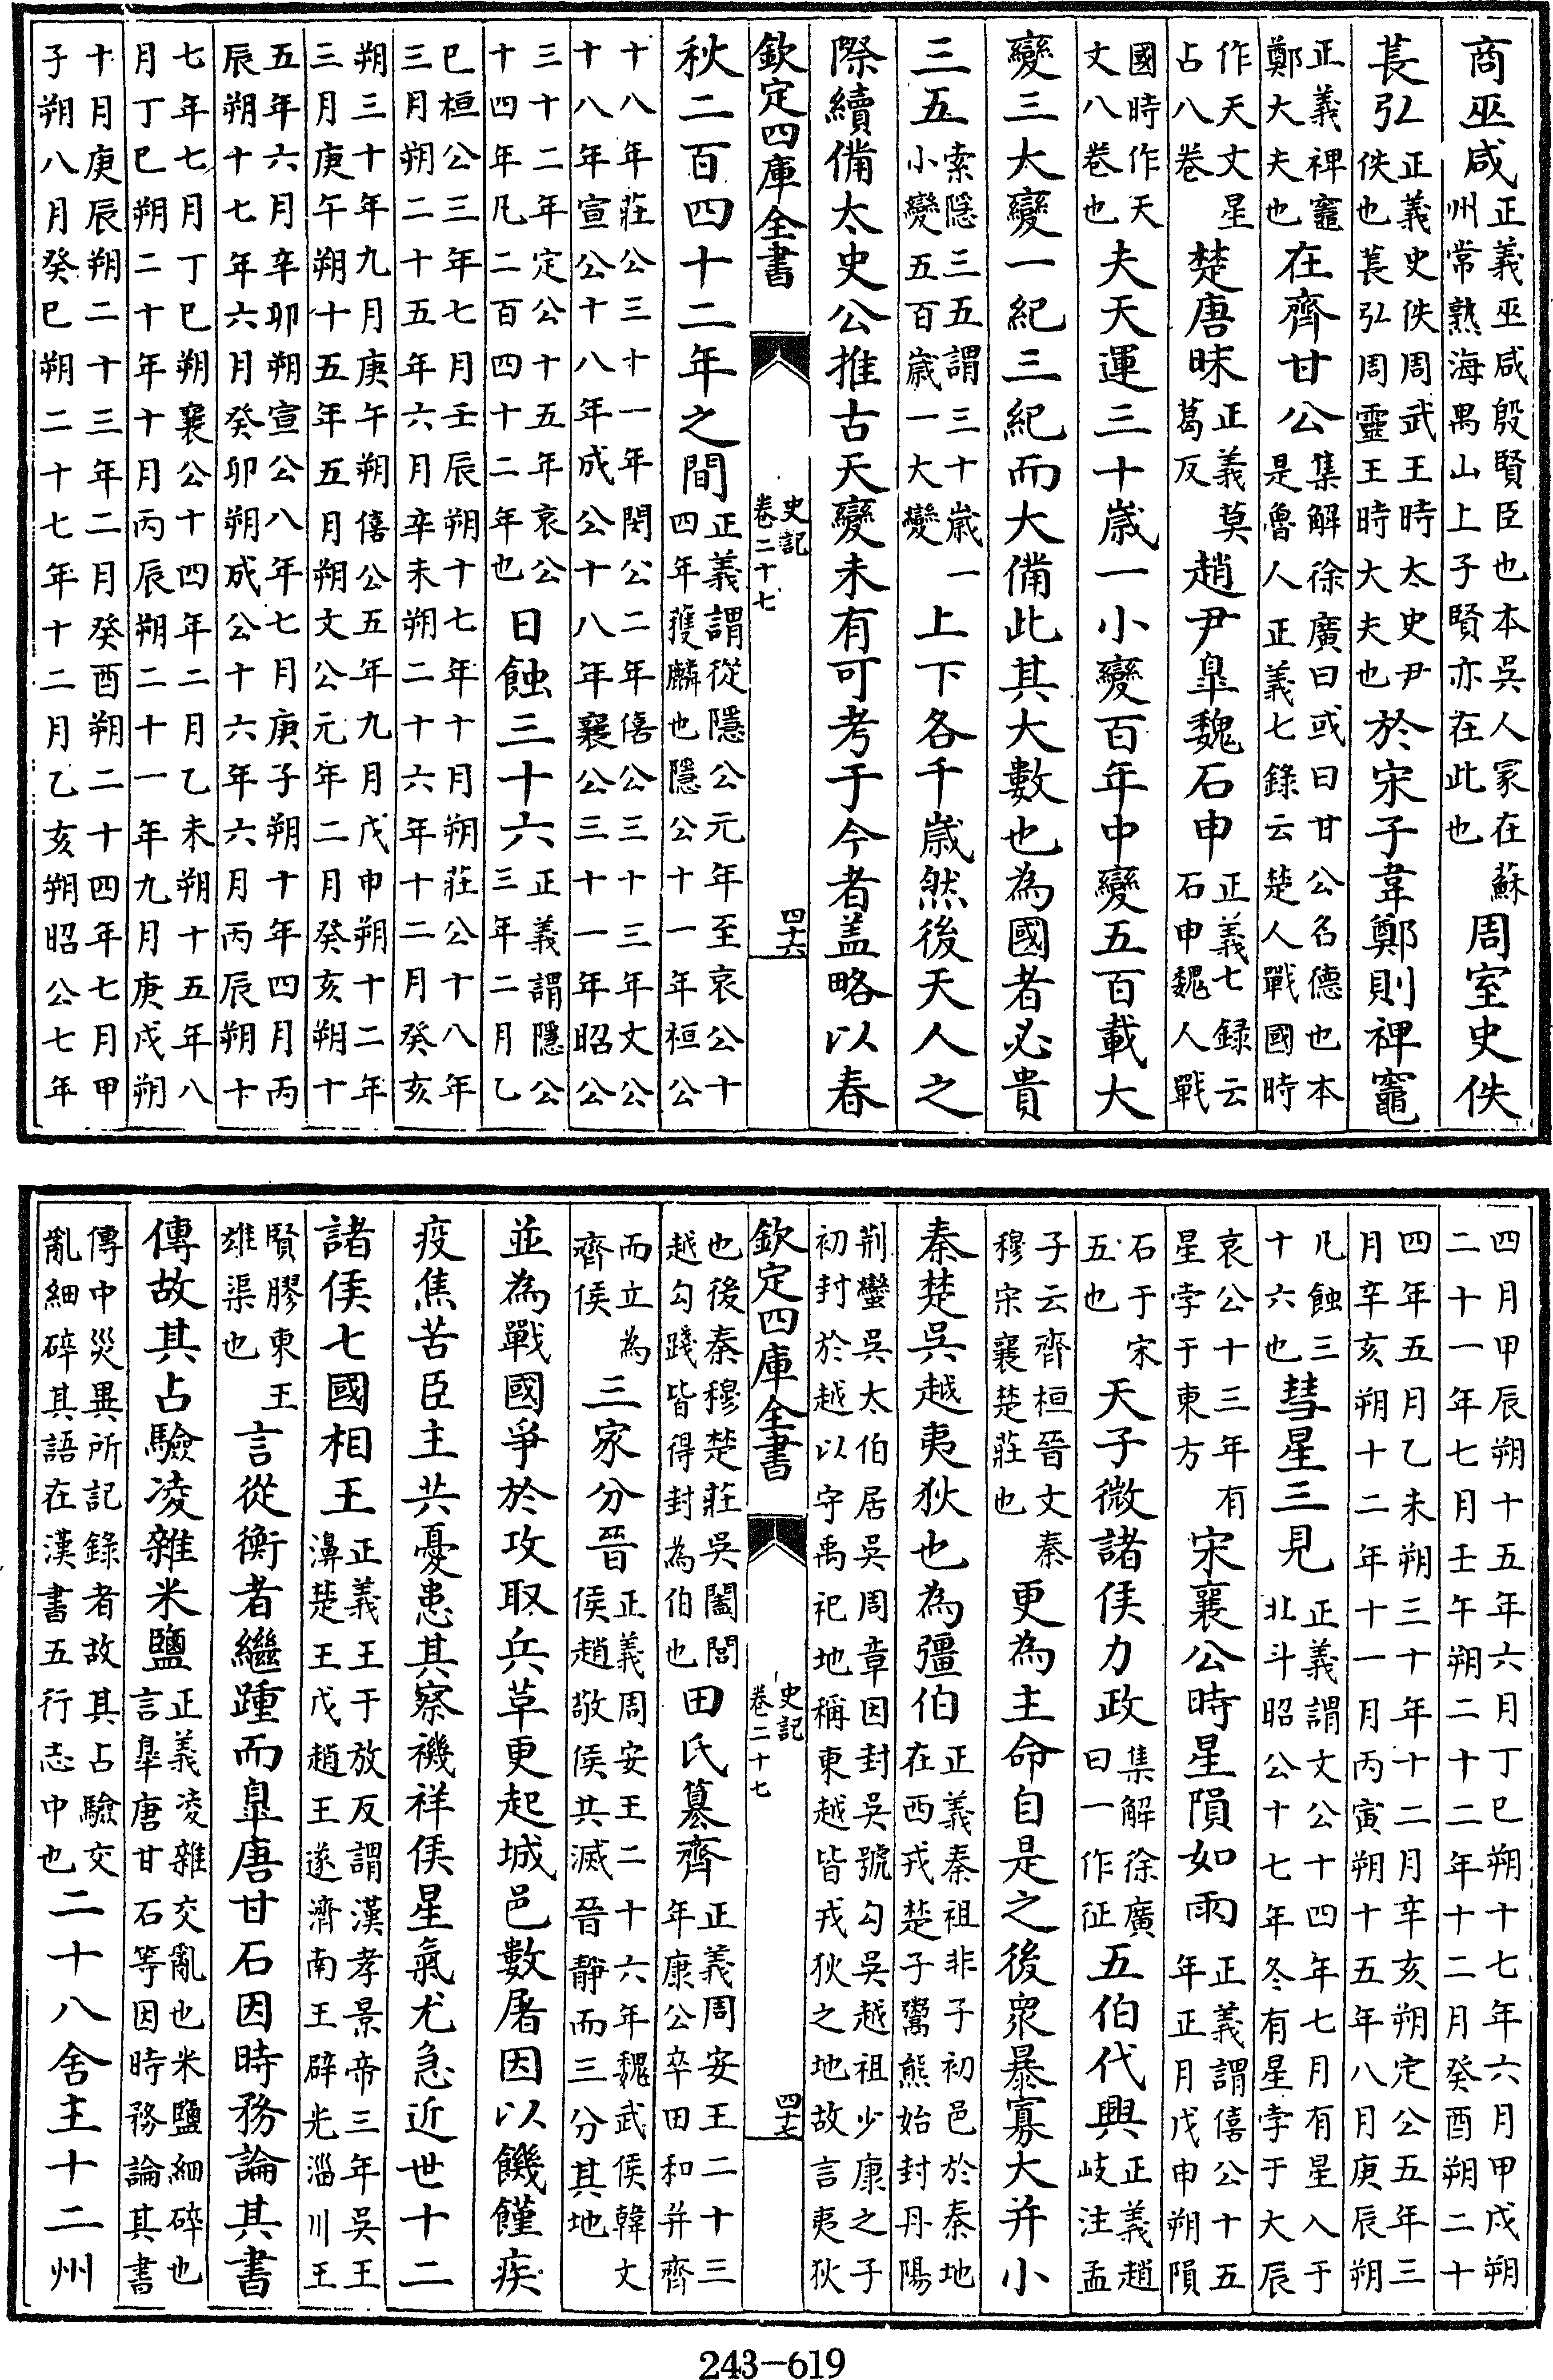 商巫咸正義巫咸殷賢臣也本吳人冢在蘇州常熟海禺山上子賢亦在此也周室史佚
萇弘正義史佚周武王時太史尹佚也萇弘周靈王時大夫也於宋子韋鄭則禆竈
正義禆竈鄭大夫也在齊甘公集解徐廣曰或曰甘公名德也本是魯人正義七錄云楚人戰國時
作天文星占八卷楚唐昧正義莫葛反趙尹臯魏石申正義七録云石申魏人戰
國時作天文八卷也夫天運三十歲一小變百年中變五百載大
變三大變一紀三紀而大備此其大數也為國者必貴
三五索隱三五謂三十歲一小變五百歲一大變上下各千歲然後天人之
際續備太史公推古天變未有可考于今者盖略以春
欽定四庫全書 史記卷二十七 四十六
秋二百四十二年之間正義謂從隱公元年至哀公十四年獲麟也隱公十一年桓公
十八年莊公三十一年閔公二年僖公三十三年文公十八年宣公十八年成公十八年襄公三十一年昭公
三十二年定公十五年哀公十四年凡二百四十二年也日蝕三十六正義謂隱公三年二月乙
巳桓公三年七月壬辰朔十七年十月朔莊公十八年三月朔二十五年六月辛未朔二十六年十二月癸亥
朔三十年九月庚午朔僖公五年九月戊申朔十二年三月庚午朔十五年五月朔文公元年二月癸亥朔十
五年六月辛卯朔宣公八年七月庚子朔十年四月丙辰朔十七年六月癸卯朔成公十六年六月丙辰朔十
七年七月丁巳朔襄公十四年二月乙未朔十五年八月丁巳朔二十年十月丙辰朔二十一年九月庚戌朔
十月庚辰朔二十三年二月癸酉朔二十四年七月甲子朔八月癸巳朔二十七年十二月乙亥朔昭公七年
四月甲辰朔十五年六月丁巳朔十七年六月甲戌朔二十一年七月壬午朔二十二年十二月癸酉朔二十
四年五月乙未朔三十年十二月辛亥朔定公五年三月辛亥朔十二年十一月丙寅朔十五年八月庚辰朔
凡蝕三十六也彗星三見正義謂文公十四年七月有星入于北斗昭公十七年冬有星孛于大辰
哀公十三年有星孛于東方宋襄公時星隕如雨正義謂僖公十五年正月戊申朔隕
石于宋五也天子微諸侯力政集解徐廣曰一作征五伯代興正義趙岐注孟
子云齊桓晉文秦穆宋襄楚莊也更為主命自是之後衆暴寡大并小
秦楚吳越夷狄也為彊伯正義秦祖非子初邑於秦地在西戎楚子鬻熊始封丹陽
荆蠻吳太伯居吳周章因封吳號勾吳越祖少康之子初封於越以守禹祀地稱東越皆戎狄之地故言夷狄
欽定四庫全書 史記卷二十七 四十七
也後秦穆楚莊吳闔閭越勾踐皆得封為伯也田氏簒齊正義周安王二十三年康公卒田和并齊
而立為齊侯三家分晉正義周安王二十六年魏武侯韓文侯趙敬侯共滅晉靜而三分其地
並為戰國爭於攻取兵革更起城邑數屠因以饑饉疾
疫焦苦臣主共憂患其察禨祥侯星氣尤急近世十二
諸侯七國相王正義王于放反謂漢孝景帝三年吳王濞楚王戊趙王遂濟南王辟光淄川王
賢膠東王雄渠也言從衡者繼踵而臯唐甘石因時務論其書
傳故其占驗凌雜米鹽正義凌雜交亂也米鹽細碎也言臯唐甘石等因時務論其書
傳中災異所記錄者故其占驗交亂細碎其語在漢書五行志中也二十八舍主十二州
243-619